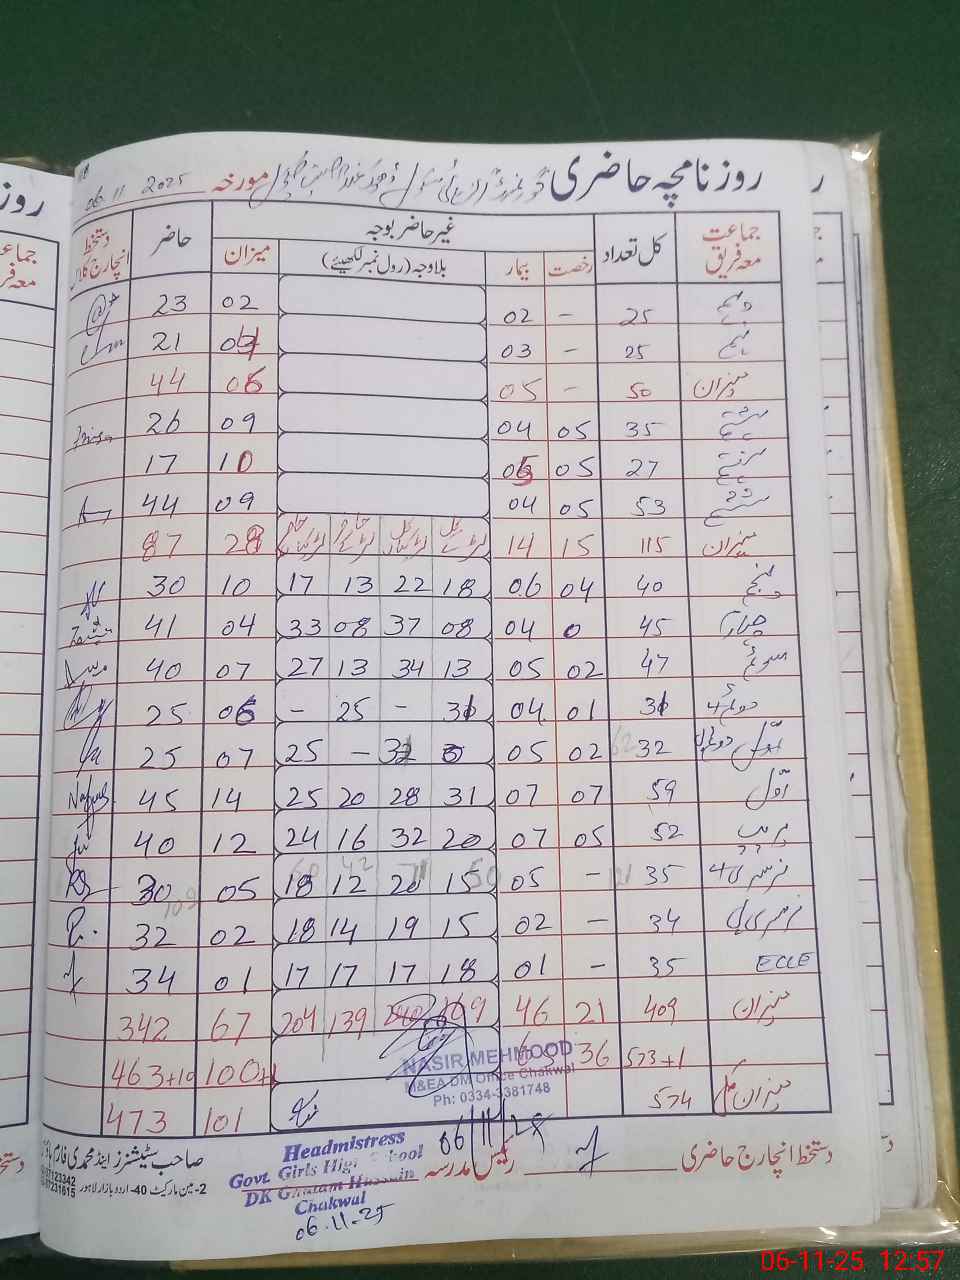 روزنامچہ حاضری گورنمنٹ مورخہ 06.11.2025
جماعت معہ فریق کل تعداد غیر حاضر بوجہ حاضر دستخط انچارج کلاس
رخصت بیمار بلاوجہ (رول نمبر لکھیئے) میزان
دہم 25 - 02 02 23
نہم 25 - 03 04 21
میزان 50 - 05 06 44
ہشتم 35 05 04 09 26
ہفتم 27 05 05 10 17
ششم 53 05 04 09 44
میزان 115 15 14 28 87
پنجم 40 04 06 18 22 13 17 10 30
چہارم 45 0 04 08 37 08 33 04 41
سوئم 47 02 05 13 34 13 27 07 40
دوئم 31 01 04 31 - 25 - 06 25
32 02 05 0 32 - 25 07 25
اول 59 07 07 31 28 20 25 14 45
پریپ 52 05 07 20 32 16 24 12 40
نرسری 35 - 05 15 20 12 18 05 30
نرسری 34 - 02 15 19 14 18 02 32
ECCE 35 - 01 18 17 17 17 01 34
میزان 409 21 46 169 139 204 67 342
573+1 36 63 100+1 463+10
میزان کل 574 101 473
NASIR MEHMOOD
M&EA DM Office Chakwal
Ph: 0334-3381748
06/11/25
دستخط انچارج حاضری رئیس مدرسہ
Headmistress
Govt. Girls High School
DK Ghulam Hussain
Chakwal
06.11-25
صاحب سٹیشنرز اینڈ محمدی فارم
2-مین مارکیٹ 40-اردو بازار لاہور
37123342
37231615
06-11-25 12:57